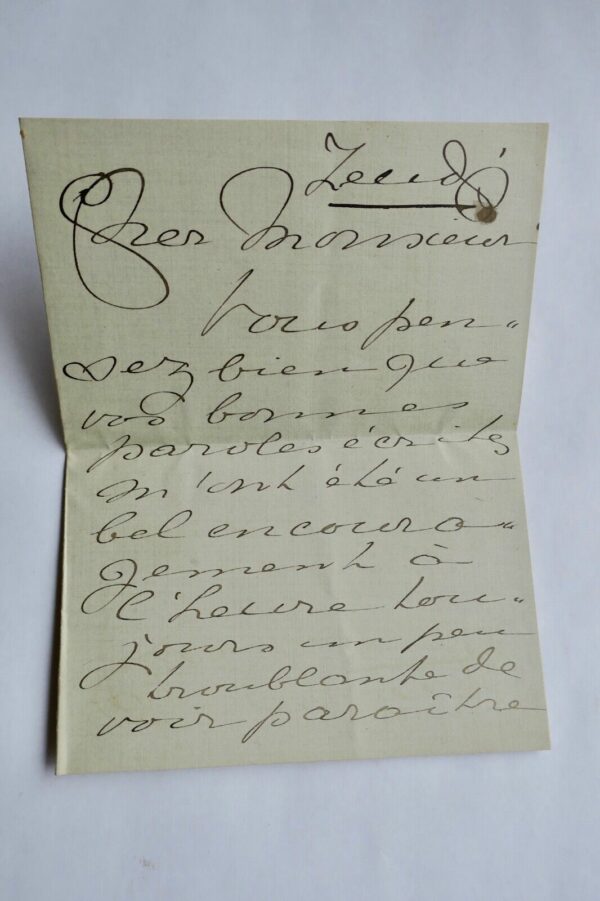 Jeudi
Cher Monsieur
Vous pen-
sez bien que
vos bonnes
paroles écrites
m'ont été un
bel encoura-
gement à
l'heure tou-
jours un peu
troublante de
voir paraître